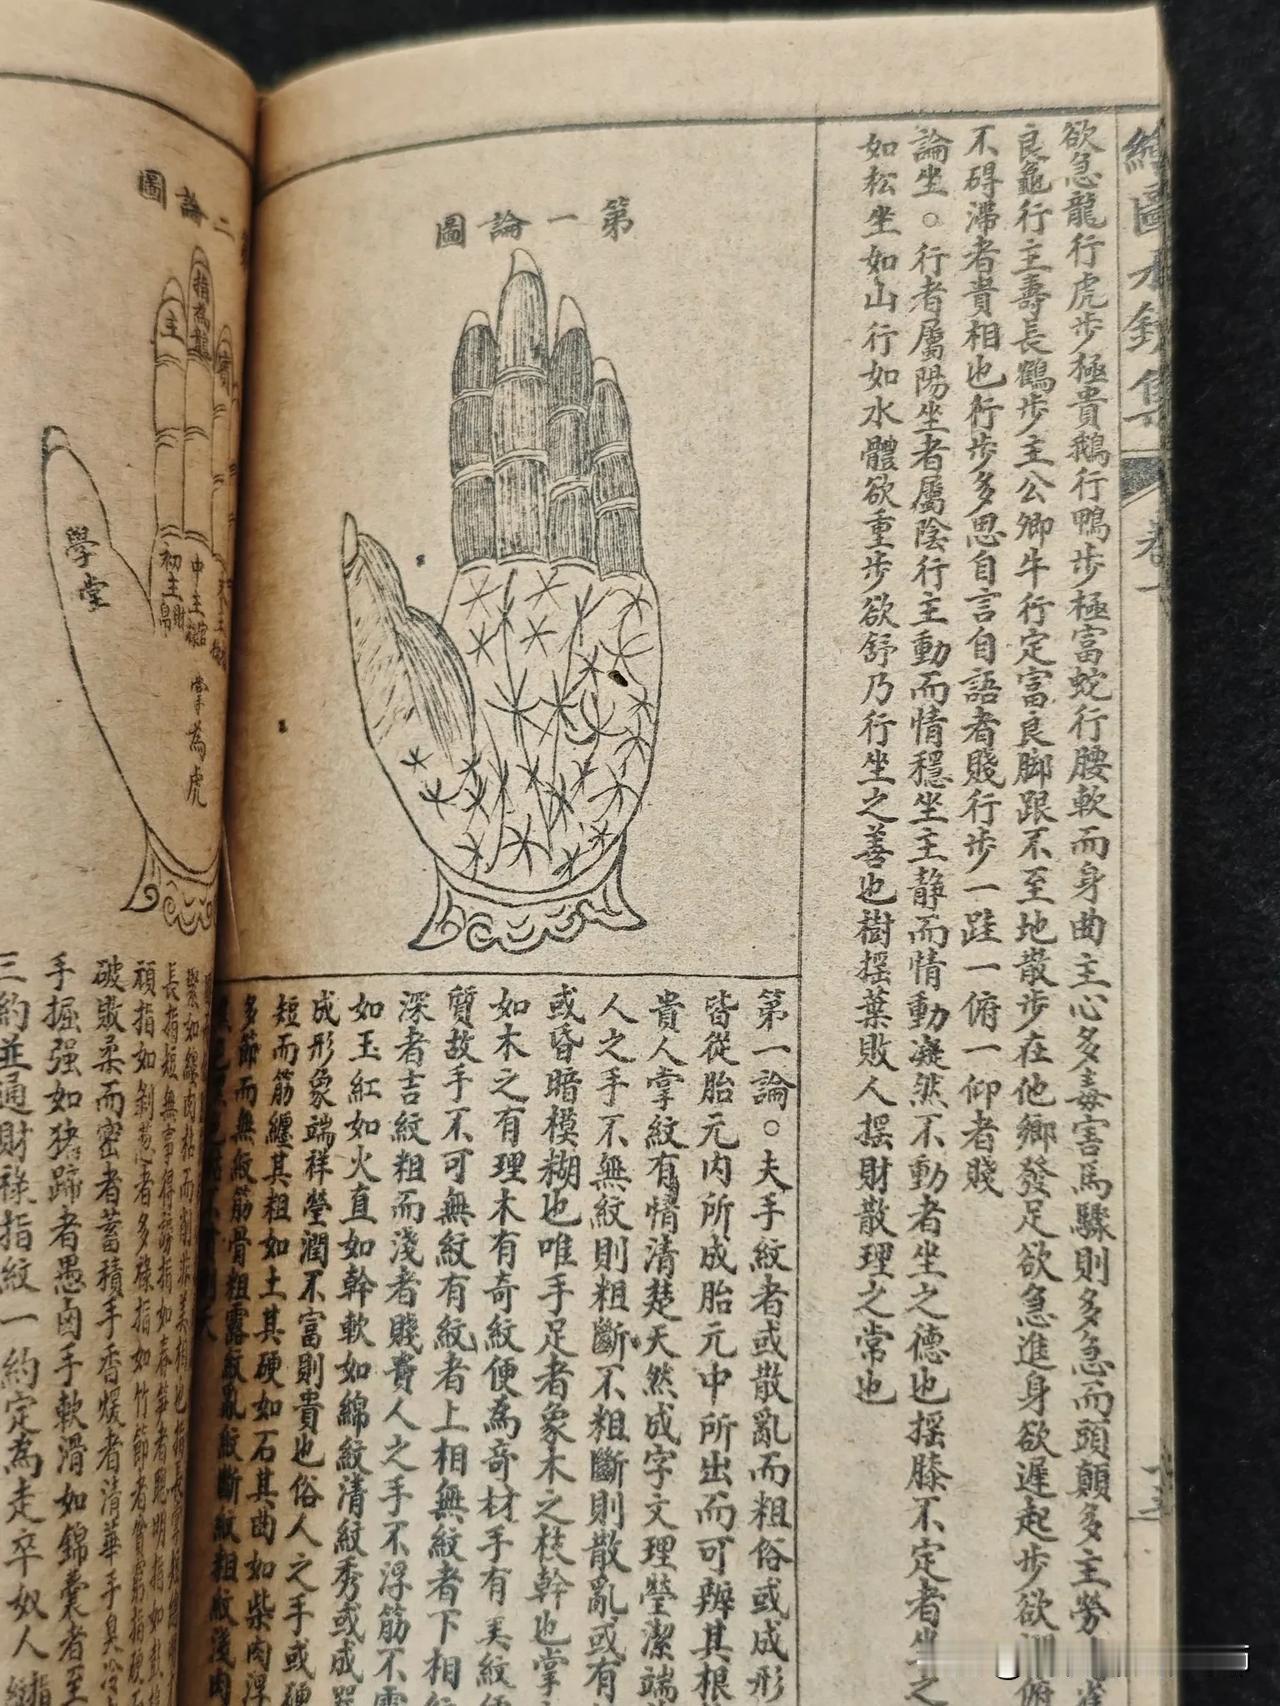 繪圖水鏡集 卷一
欲急龍行虎步極貴鵝行鴨步極富蛇行腰軟而身曲主心多毒害馬驟則多急而頭顛多主勞
良龜行主壽長鶴步主公卿牛行定富良脚跟不至地散步在他鄉發足欲急進身欲遲起步欲
不碍滯者貴相也行步多思自言自語者賤行步一跬一俯一仰者賤
論坐。行者屬陽坐者屬陰行主動而情穩坐主靜而情動凝然不動者坐之德也摇膝不定者坐之
如松坐如山行如水體欲重步欲舒乃行坐之善也樹摇葉敗人摇財散理之常也
第一論圖
第一論。夫手紋者或散亂而粗俗或成形
皆從胎元内所成胎元中所出而可辨其根
貴人掌紋有情清楚天然成字文理瑩潔端
人之手不無紋則粗斷不粗斷則散亂或有
或昏暗模糊也唯手足者象木之枝幹也掌
如木之有理木有奇紋便為奇材手有美紋
質故手不可無紋有紋者上相無紋者下相
深者吉紋粗而淺者賤貴人之手不浮筋不
如玉紅如火直如幹軟如綿紋清紋秀或成
成形象端祥瑩潤不富則貴也俗人之手或硬
短而筋纏其粗如土其硬如石其曲如柴肉浮
多節而無紋筋骨粗露紋亂紋斷紋粗紋淺肉
二論圖
指為龍
主
賓
學堂
初主財帛
中主官祿
掌為虎
長指短無事得謗指如春笋者聰明指如
頑指如剝葱者多祿指如竹節者貧窮指硬
破敗柔而密者蓄積手香煖者清華手臭冷
手掘强如猪蹄者愚卤手軟滑如錦囊者至
三約並通財祿指紋一約定為走卒奴人